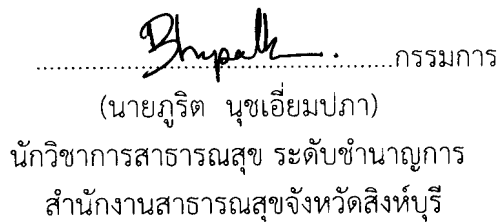 ........................................กรรมการ
(นายภูริต นุชเอี่ยมปภา)
นักวิชาการสาธารณสุข ระดับชำนาญการ
สำนักงานสาธารณสุขจังหวัดสิงห์บุรี